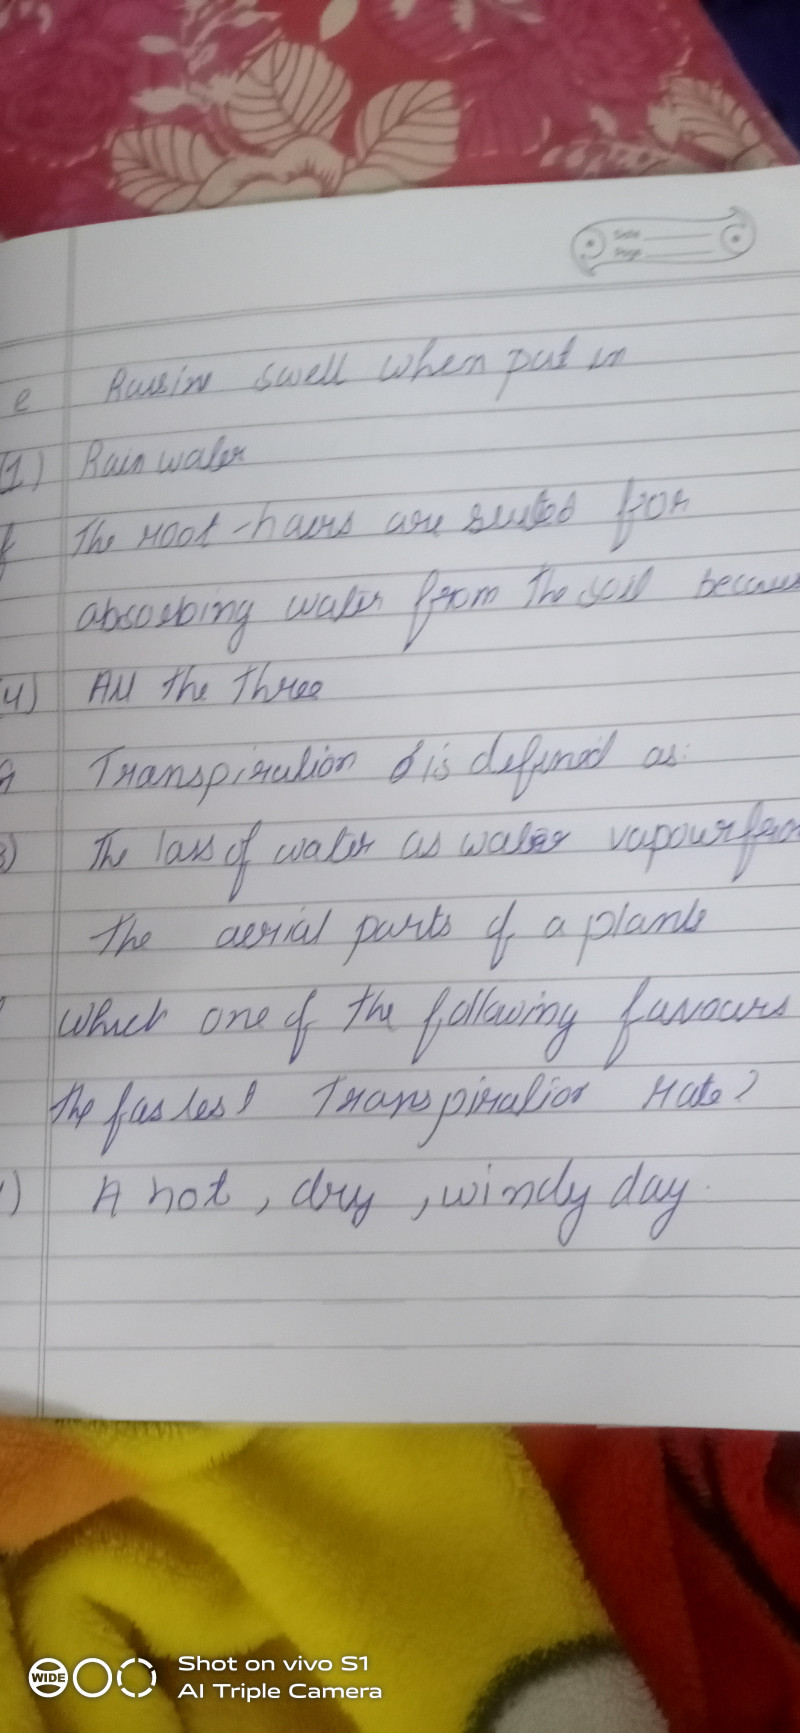 Date
Page
e Raisins swell when put in
(1) Rain water
f The root-hairs are suited for
absorbing water from the soil because
(4) All the three
g Transpiration is defined as:
3) The loss of water as water vapour from
the aerial parts of a plants
which one of the following favours
the fastest Transpiration rate?
) A hot, dry, windy day.
WIDE
Shot on vivo S1
AI Triple Camera